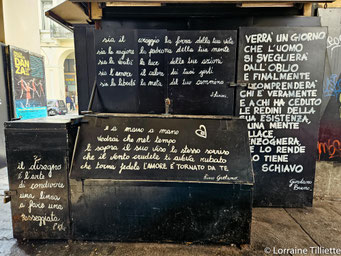 DAN
ZA
sia il coraggio la forza della tua vita
sia la ragione la padrona della tua mente
sia la verità la luce delle tue azioni
sia l'amore il calore dei tuoi gesti
sia la libertà la meta del tuo cammino
e a mano a mano
vedrai che nel tempo
lì sopra il suo viso lo stesso sorriso
che il vento crudele ti aveva rubato
che torna fedele L'AMORE È TORNATO DA TE
Rino Gaetano
il disegno
è l'arte
di condividere
una linea
e fare una
passeggiata
VERRÀ UN GIORNO
CHE L'UOMO
SI SVEGLIERÀ
DALL'OBLIO
E FINALMENTE
COMPRENDERÀ
CHI È VERAMENTE
E A CHI HA CEDUTO
LE REDINI DELLA
SUA ESISTENZA
UNA MENTE
FALLACE
MENZOGNERA
E LO RENDE
LO TIENE
SCHIAVO
Giordano
Bruno
© Lorraine Tilliette